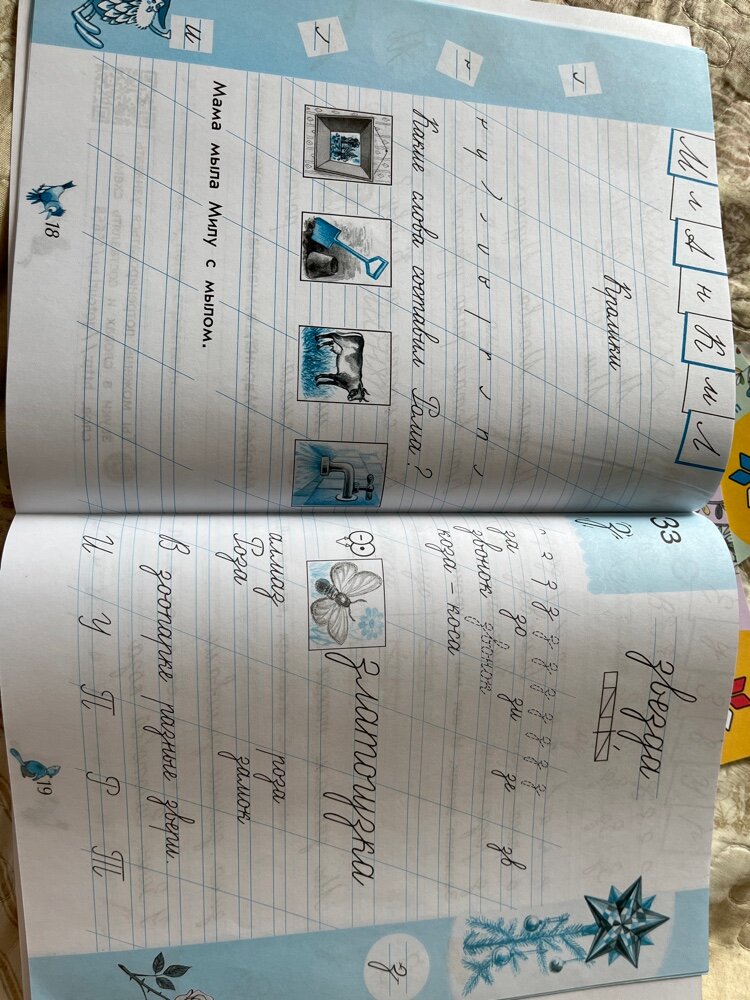 М л А н К м Л
Кралики
Какие слова составил Рома?
Мама мыла Милу с мылом.
и
18
33
звезда
за зо зи зе зв
звонок звонок
коза – коса
златоузка
алмаз роза
Роза замок
В зоопарке разные звери.
И У П Р Т
19
з